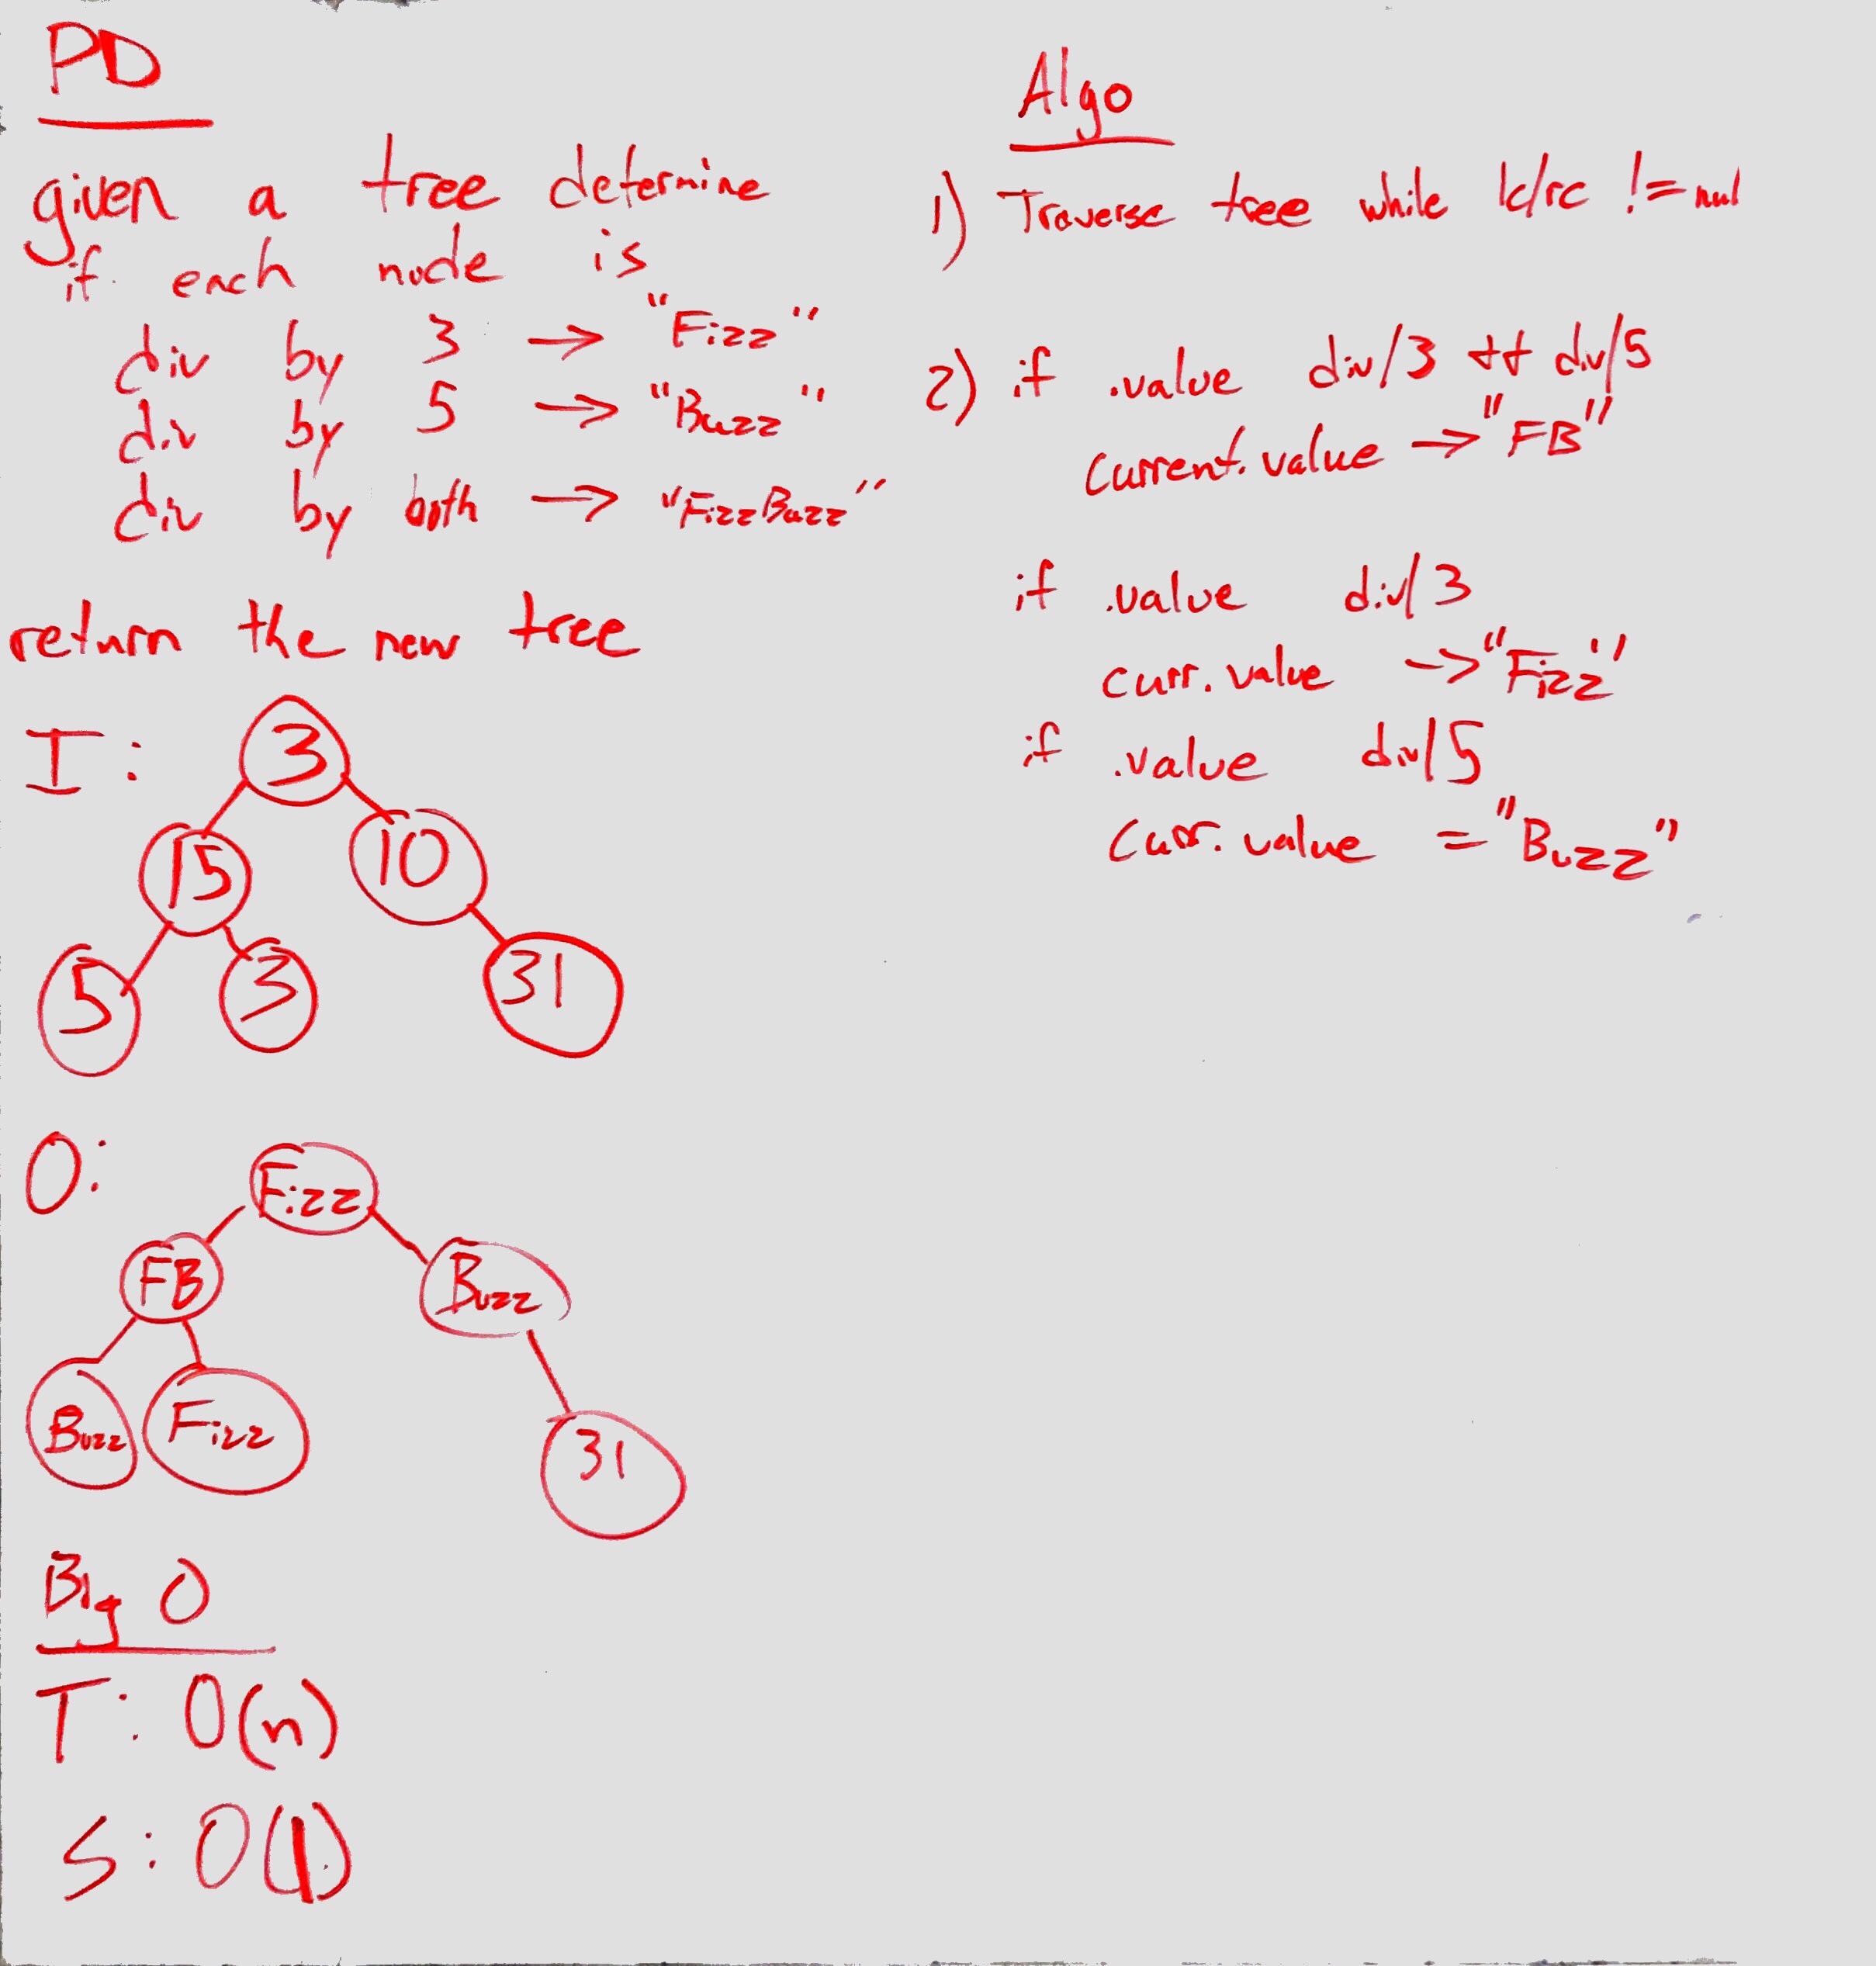 PD
given a tree determine
if each node is
div by 3 -> "Fizz"
div by 5 -> "Buzz"
div by both -> "FizzBuzz"
return the new tree
I:
3
15 10
5 3 31
O:
Fizz
FB Buzz
Buzz Fizz 31
Big O
T: O(n)
S: O(1)
Algo
1) Traverse tree while lc/rc != null
2) if .value div/3 && div/5
current.value -> "FB"
if .value div/3
curr.value -> "Fizz"
if .value div/5
curr.value = "Buzz"